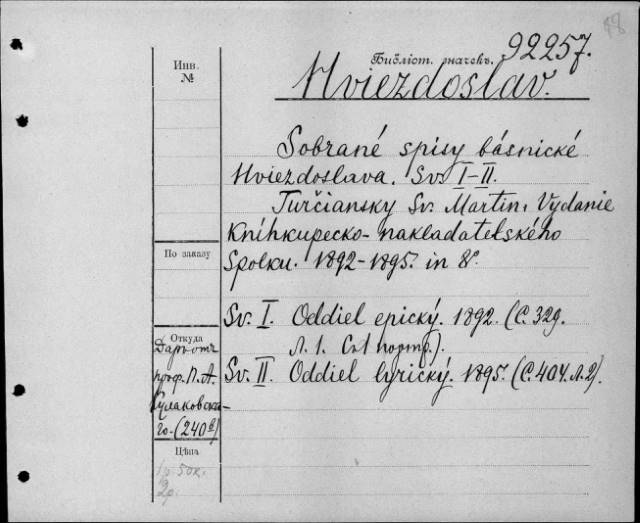 98
Инв.
№
Библіот. значекъ. 92257.
Hviezdoslav.
Sobrané spisy básnické
Hviezdoslava. Sv. I-II.
Turčiansky Sv. Martin. Vydanie
Kníhkupecko-nakladatelského
Spolku. 1892-1895. in 8°.
По заказу
Sv. I. Oddiel epický. 1892. (С. 329.
Л. 1. Съ 1 портр.).
Sv. II. Oddiel lyrický. 1895. (С. 404. Л. 2).
Откуда
Даръ отъ
проф. П. А.
Кулаковска-
го. (240)
Цѣна
1 р. 50 к.
2 р.